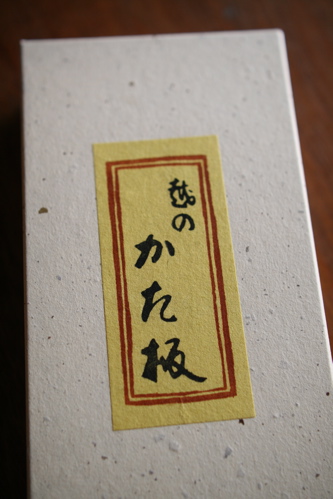 越の
かた板